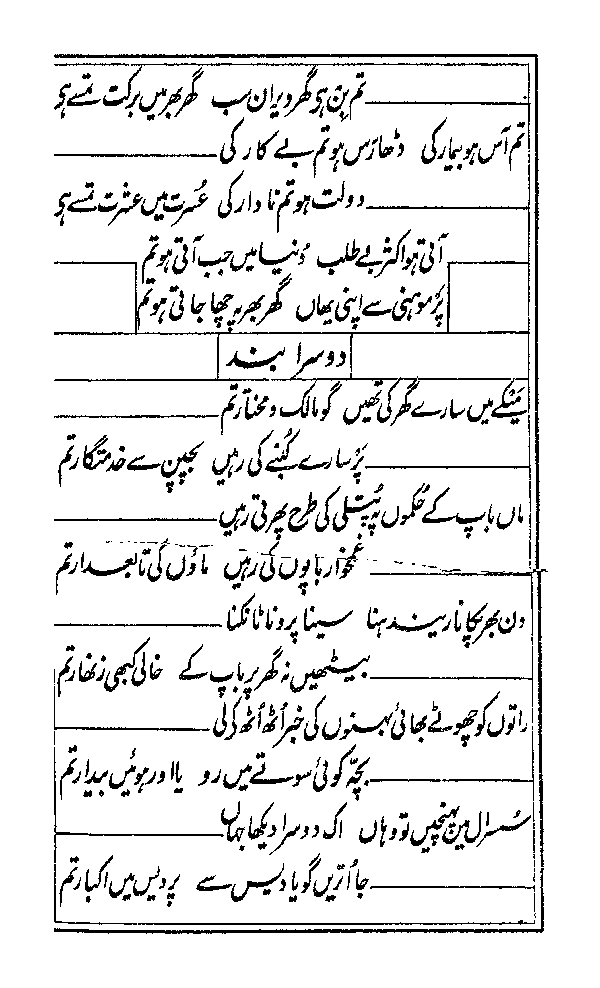 تم بن ہو گھر ویران سب گھر بھر میں برکت تمسے ہی
تم آس ہو بیمار کی ڈھارس ہو تم بے کار کی
دولت ہو تم نادار کی عُسرت میں عشرت تمسے ہی
آتی ہو اکثر بے طلب دُنیا میں جب آتی ہو تم
پَر موہنی سے اپنی یھاں گھر بھر پہ چھا جاتی ہو تم
دوسرا بند
مَیْکے میں سارے گھر کی تھیں گو مالک و مختار تم
پَر سارے کُنبے کی رہیں بچپن سے خدمتگار تم
ماں باپ کے حُکموں پہ پُتلی کی طرح پھرتی رہیں
غمخوار باپوں کی رہیں ماؤں کی تابعدار تم
دن بھر پکانا ریندہنا سینا پرونا ٹانکنا
بیٹھیں نہ گھر پر باپ کے خالی کبھی زنھار تم
راتوں کو چھوٹے بھائی بہنوں کی خبر اُٹھ اُٹھ کر لی
بچّہ کوئی سوتے میں رو یا اور ہوئیں بیدار تم
سُسرال میں پہنچیں تو وہاں اک دوسرا دیکھا جہاں
جا اُتریں گویا دیس سے پردیس میں اکبار تم